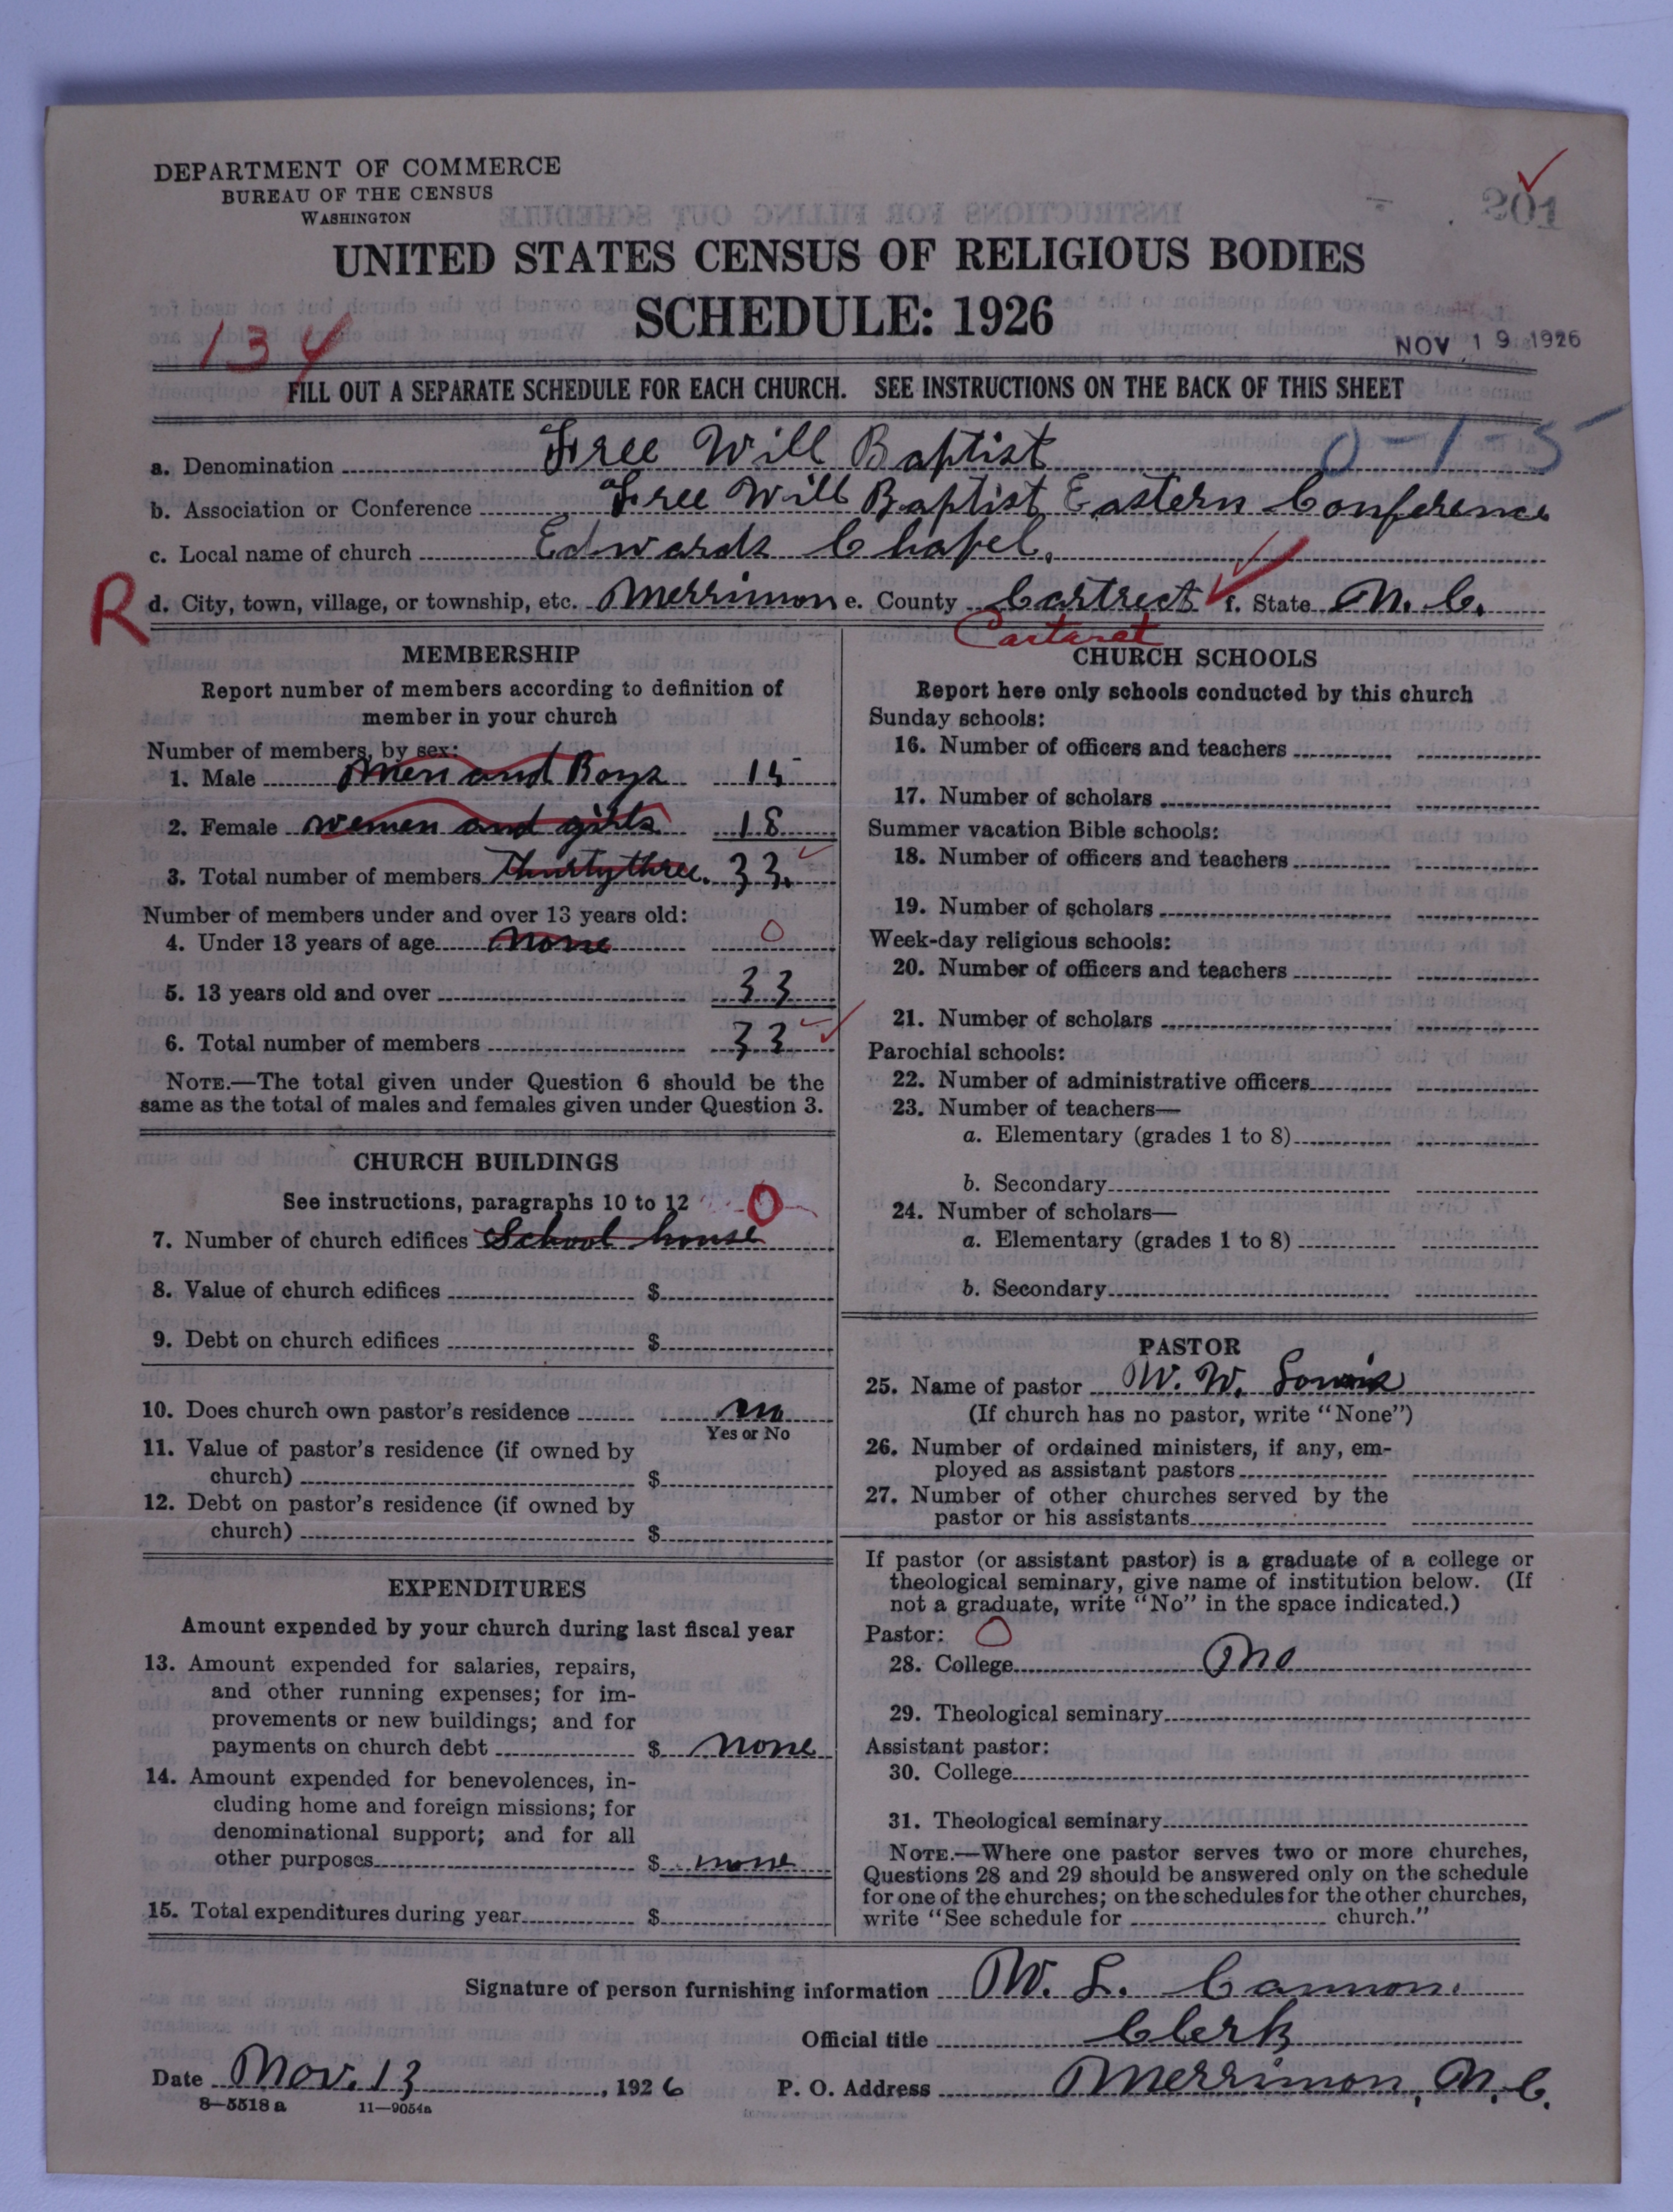 DEPARTMENT OF COMMERCE
BUREAU OF THE CENSUS
WASHINGTON
201
UNITED STATES CENSUS OF RELIGIOUS BODIES
SCHEDULE: 1926
134
NOV 19 1926
FILL OUT A SEPARATE SCHEDULE FOR EACH CHURCH. SEE INSTRUCTIONS ON THE BACK OF THIS SHEET
0-1-5
a. Denomination Free Will Baptist
b. Association or Conference Free Will Baptist Eastern Conference
c. Local name of church Edwards Chapel.
R d. City, town, village, or township, etc. Merrimon e. County Cartrect f. State N. C.
Cartaret
MEMBERSHIP
Report number of members according to definition of
member in your church
Number of members, by sex:
1. Male Men and Boys 15
2. Female Women and girls 18
3. Total number of members Thirty three. 33.
Number of members under and over 13 years old:
4. Under 13 years of age None 0
5. 13 years old and over 33
6. Total number of members 33
NOTE.—The total given under Question 6 should be the
same as the total of males and females given under Question 3.
CHURCH BUILDINGS
See instructions, paragraphs 10 to 12 0
7. Number of church edifices School house
8. Value of church edifices $
9. Debt on church edifices $
10. Does church own pastor's residence no
Yes or No
11. Value of pastor's residence (if owned by
church) $
12. Debt on pastor's residence (if owned by
church) $
EXPENDITURES
Amount expended by your church during last fiscal year
13. Amount expended for salaries, repairs,
and other running expenses; for im-
provements or new buildings; and for
payments on church debt $ none
14. Amount expended for benevolences, in-
cluding home and foreign missions; for
denominational support; and for all
other purposes $ none
15. Total expenditures during year $
CHURCH SCHOOLS
Report here only schools conducted by this church
Sunday schools:
16. Number of officers and teachers
17. Number of scholars
Summer vacation Bible schools:
18. Number of officers and teachers
19. Number of scholars
Week-day religious schools:
20. Number of officers and teachers
21. Number of scholars
Parochial schools:
22. Number of administrative officers
23. Number of teachers—
a. Elementary (grades 1 to 8)
b. Secondary
24. Number of scholars—
a. Elementary (grades 1 to 8)
b. Secondary
PASTOR
25. Name of pastor W. W.
(If church has no pastor, write "None")
26. Number of ordained ministers, if any, em-
ployed as assistant pastors
27. Number of other churches served by the
pastor or his assistants
If pastor (or assistant pastor) is a graduate of a college or
theological seminary, give name of institution below. (If
not a graduate, write "No" in the space indicated.)
Pastor: 0
28. College No
29. Theological seminary
Assistant pastor:
30. College
31. Theological seminary
NOTE.—Where one pastor serves two or more churches,
Questions 28 and 29 should be answered only on the schedule
for one of the churches; on the schedules for the other churches,
write "See schedule for church."
Signature of person furnishing information W. L. Cannon.
Official title Clerk
Date Nov. 13, 1926 P. O. Address Merrimon, N. C.
8—5518 a 11—9054a